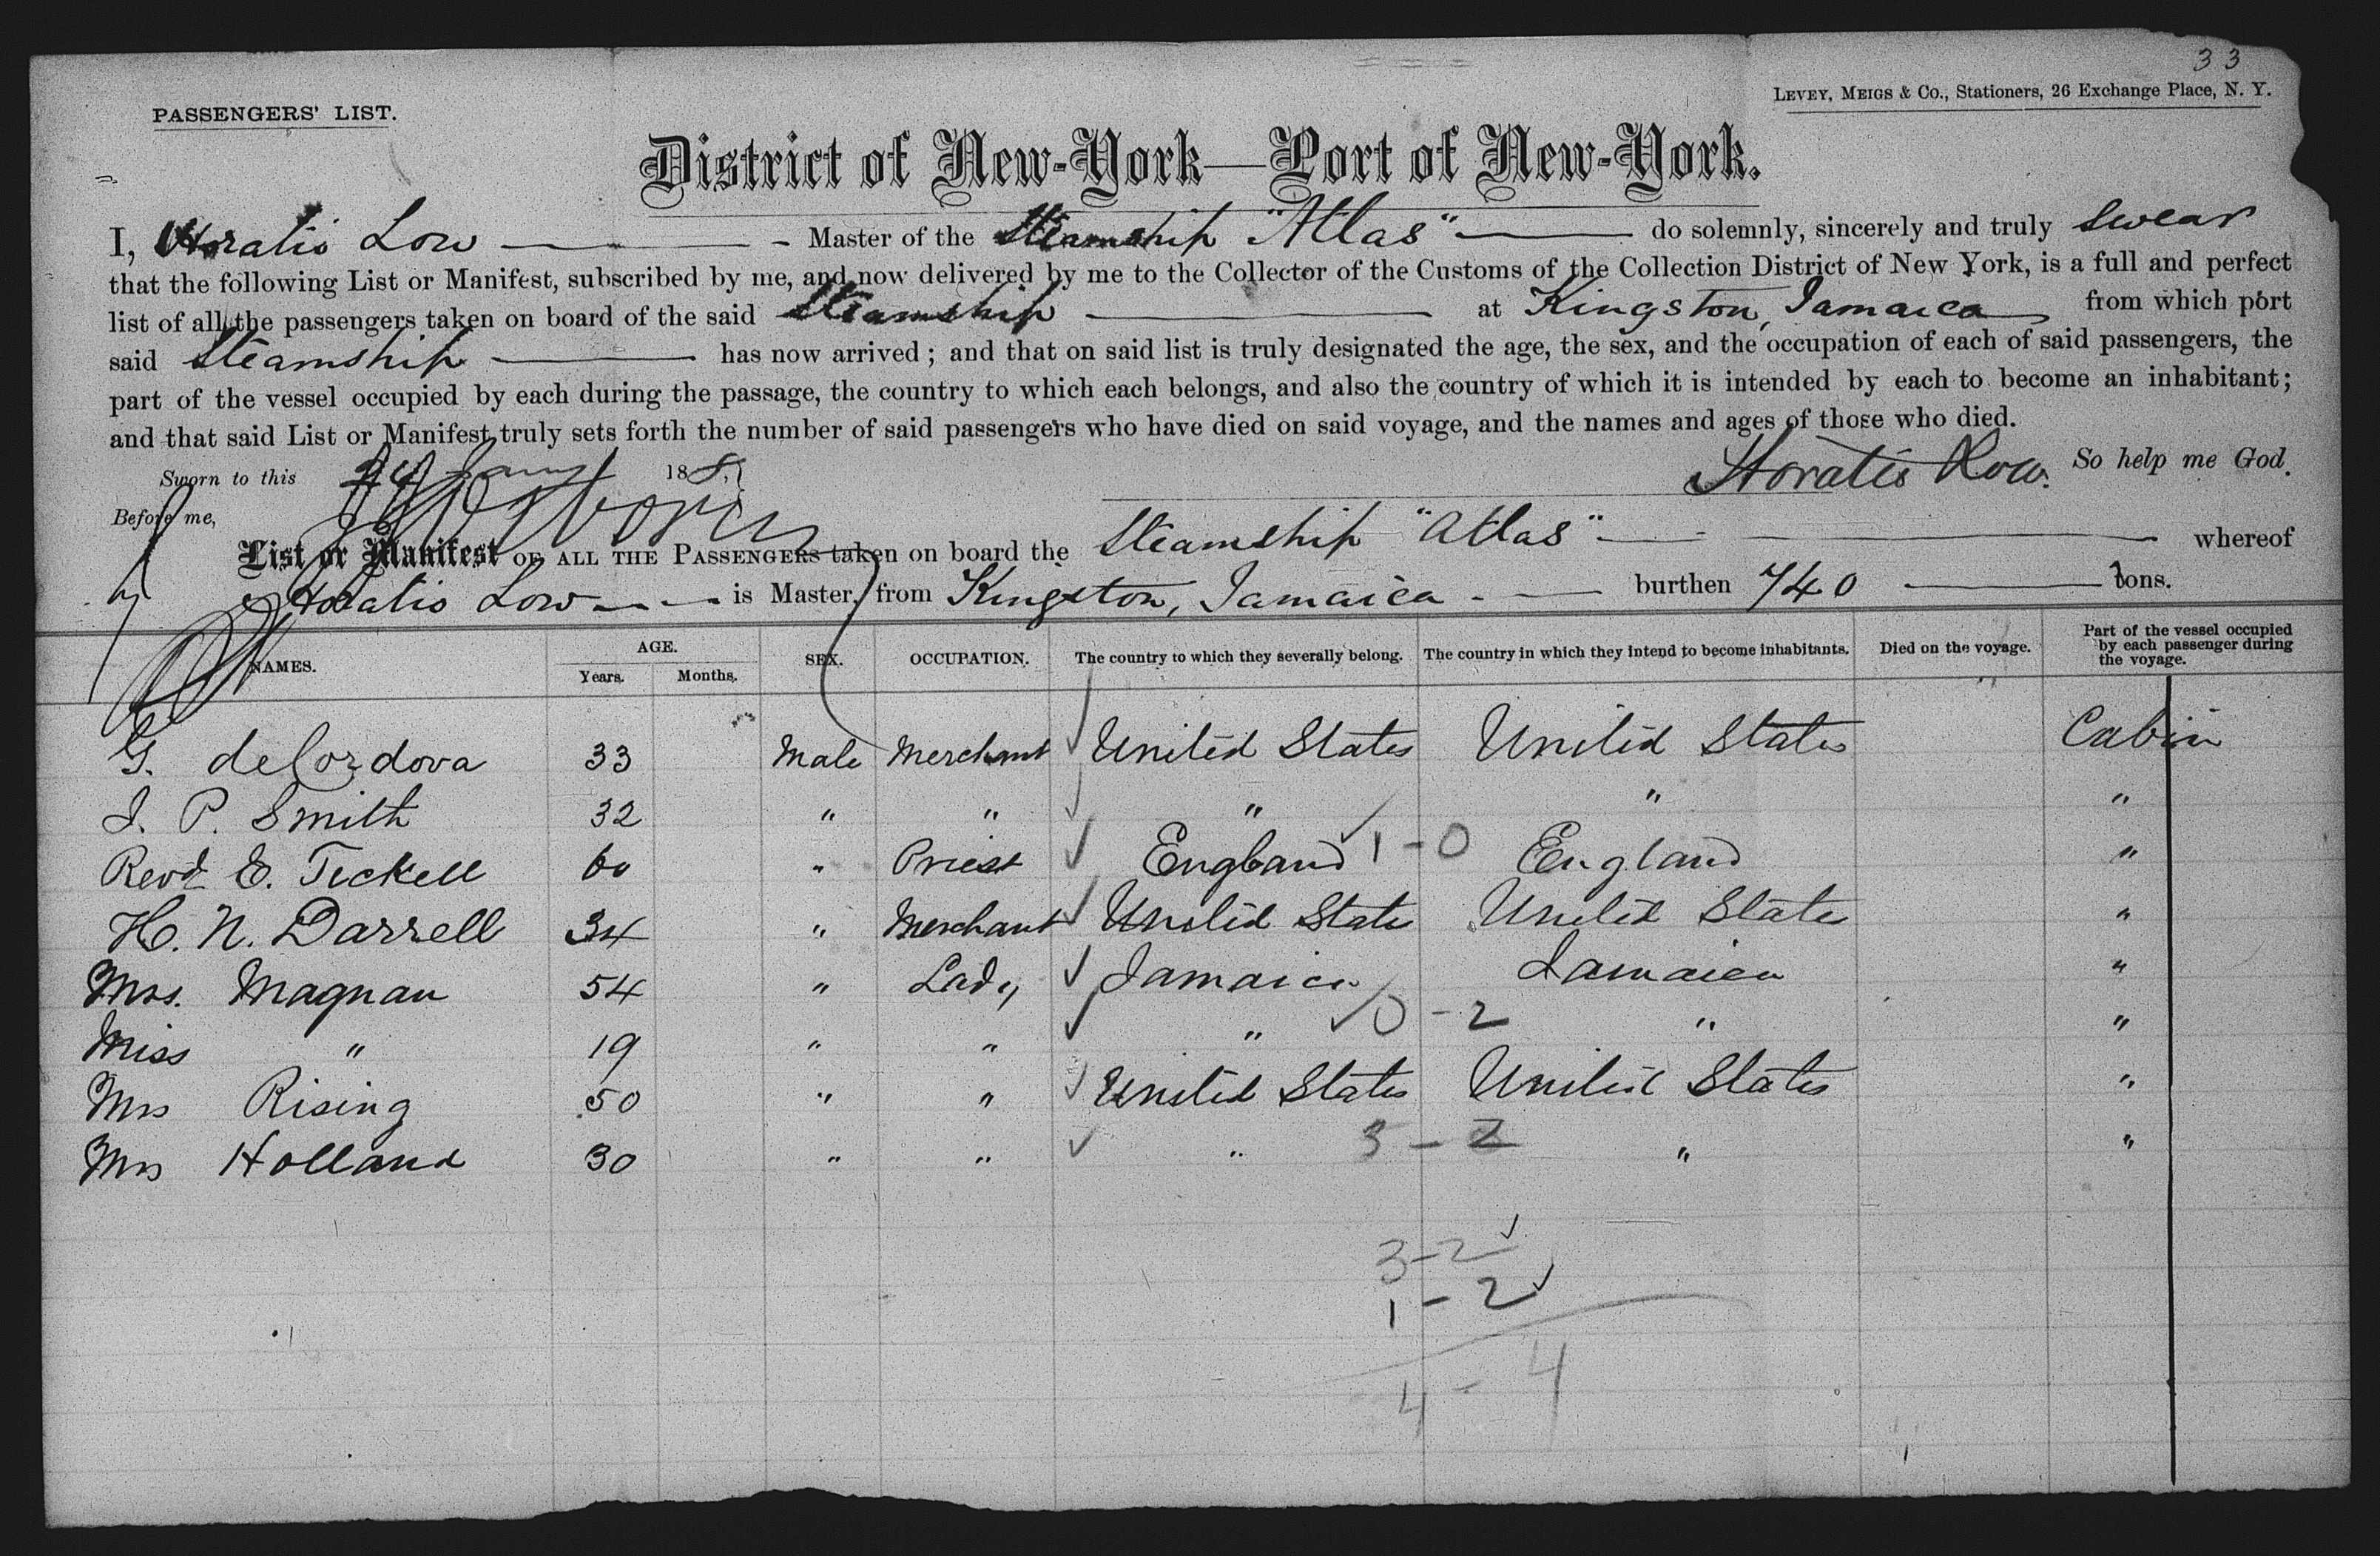 33
PASSENGERS' LIST.
LEVEY, MEIGS & Co., Stationers, 26 Exchange Place, N. Y.
District of New-York—Port of New-York.
I, Horatio Low — Master of the Steamship "Atlas" — do solemnly, sincerely and truly swear
that the following List or Manifest, subscribed by me, and now delivered by me to the Collector of the Customs of the Collection District of New York, is a full and perfect
list of all the passengers taken on board of the said Steamship — at Kingston, Jamaica from which port
said Steamship — has now arrived; and that on said list is truly designated the age, the sex, and the occupation of each of said passengers, the
part of the vessel occupied by each during the passage, the country to which each belongs, and also the country of which it is intended by each to become an inhabitant;
and that said List or Manifest truly sets forth the number of said passengers who have died on said voyage, and the names and ages of those who died.
Sworn to this 24 188 Horatio Low. So help me God.
Before me,
List or Manifest OF ALL THE PASSENGERS taken on board the Steamship "Atlas" — whereof
Horatio Low — is Master, from Kingston, Jamaica — burthen 740 — tons.
NAMES. AGE. Years. Months. SEX. OCCUPATION. The country to which they severally belong. The country in which they intend to become inhabitants. Died on the voyage. Part of the vessel occupied by each passenger during the voyage.
G. deCordova 33 Male Merchant United States United States Cabin
J. P. Smith 32 " " " " "
Revd E. Tickell 60 " Priest England 1-0 England "
H. N. Darrell 34 " Merchant United States United States "
Mrs. Magnan 54 " Lady Jamaica Jamaica "
Miss " 19 " " " 0-2 " "
Mrs Rising 50 " " United States United States "
Mrs Holland 30 " " " 3-2 " "
3-2
1-2
4-4